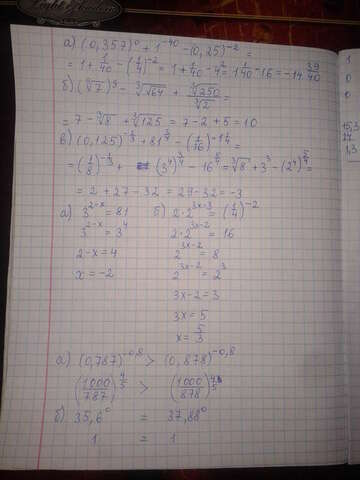 а) (0,357)⁰ + 1⁻⁴⁰ - (0,25)⁻² =
= 1 + 1/40 - (1/4)⁻² = 1 + 1/40 - 4² = 1 1/40 - 16 = -14 39/40
б) (⁵√7)⁵ - ³√√64 + ³√250 / ³√2 =
= 7 - ³√8 + ³√125 = 7 - 2 + 5 = 10
в) (0,125)^(-1/3) + 81^(3/4) - (1/16)^(-1 1/4) =
= (1/8)^(-1/3) + (3⁴)^(3/4) - 16^(5/4) = ³√8 + 3³ - (2⁴)^(5/4) =
= 2 + 27 - 32 = 29 - 32 = -3
а) 3^(2-x) = 81
3^(2-x) = 3⁴
2 - x = 4
x = -2
б) 2·2^(3x-3) = (1/4)⁻²
2·2^(3x-2) = 16
2^(3x-2) = 8
2^(3x-2) = 2³
3x - 2 = 3
3x = 5
x = 5/3
а) (0,787)^(-0,8) > (0,878)^(-0,8)
(1000/787)^(4/5) > (1000/878)^(4/5)
б) 35,6⁰ = 37,88⁰
1 = 1